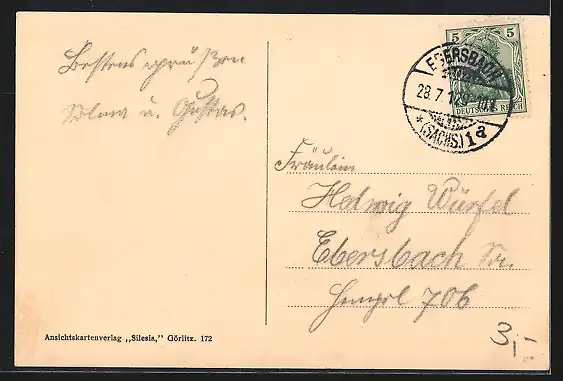 Bestens grüßen
Selma u. Gustav.
5 5
DEUTSCHES REICH
EBERSBACH
28.7.12.
* (SACHS.) 1 a
Fräulein
Hedwig Würfel
Ebersbach Sa.
706
Ansichtskartenverlag „Silesia," Görlitz. 172
3,-